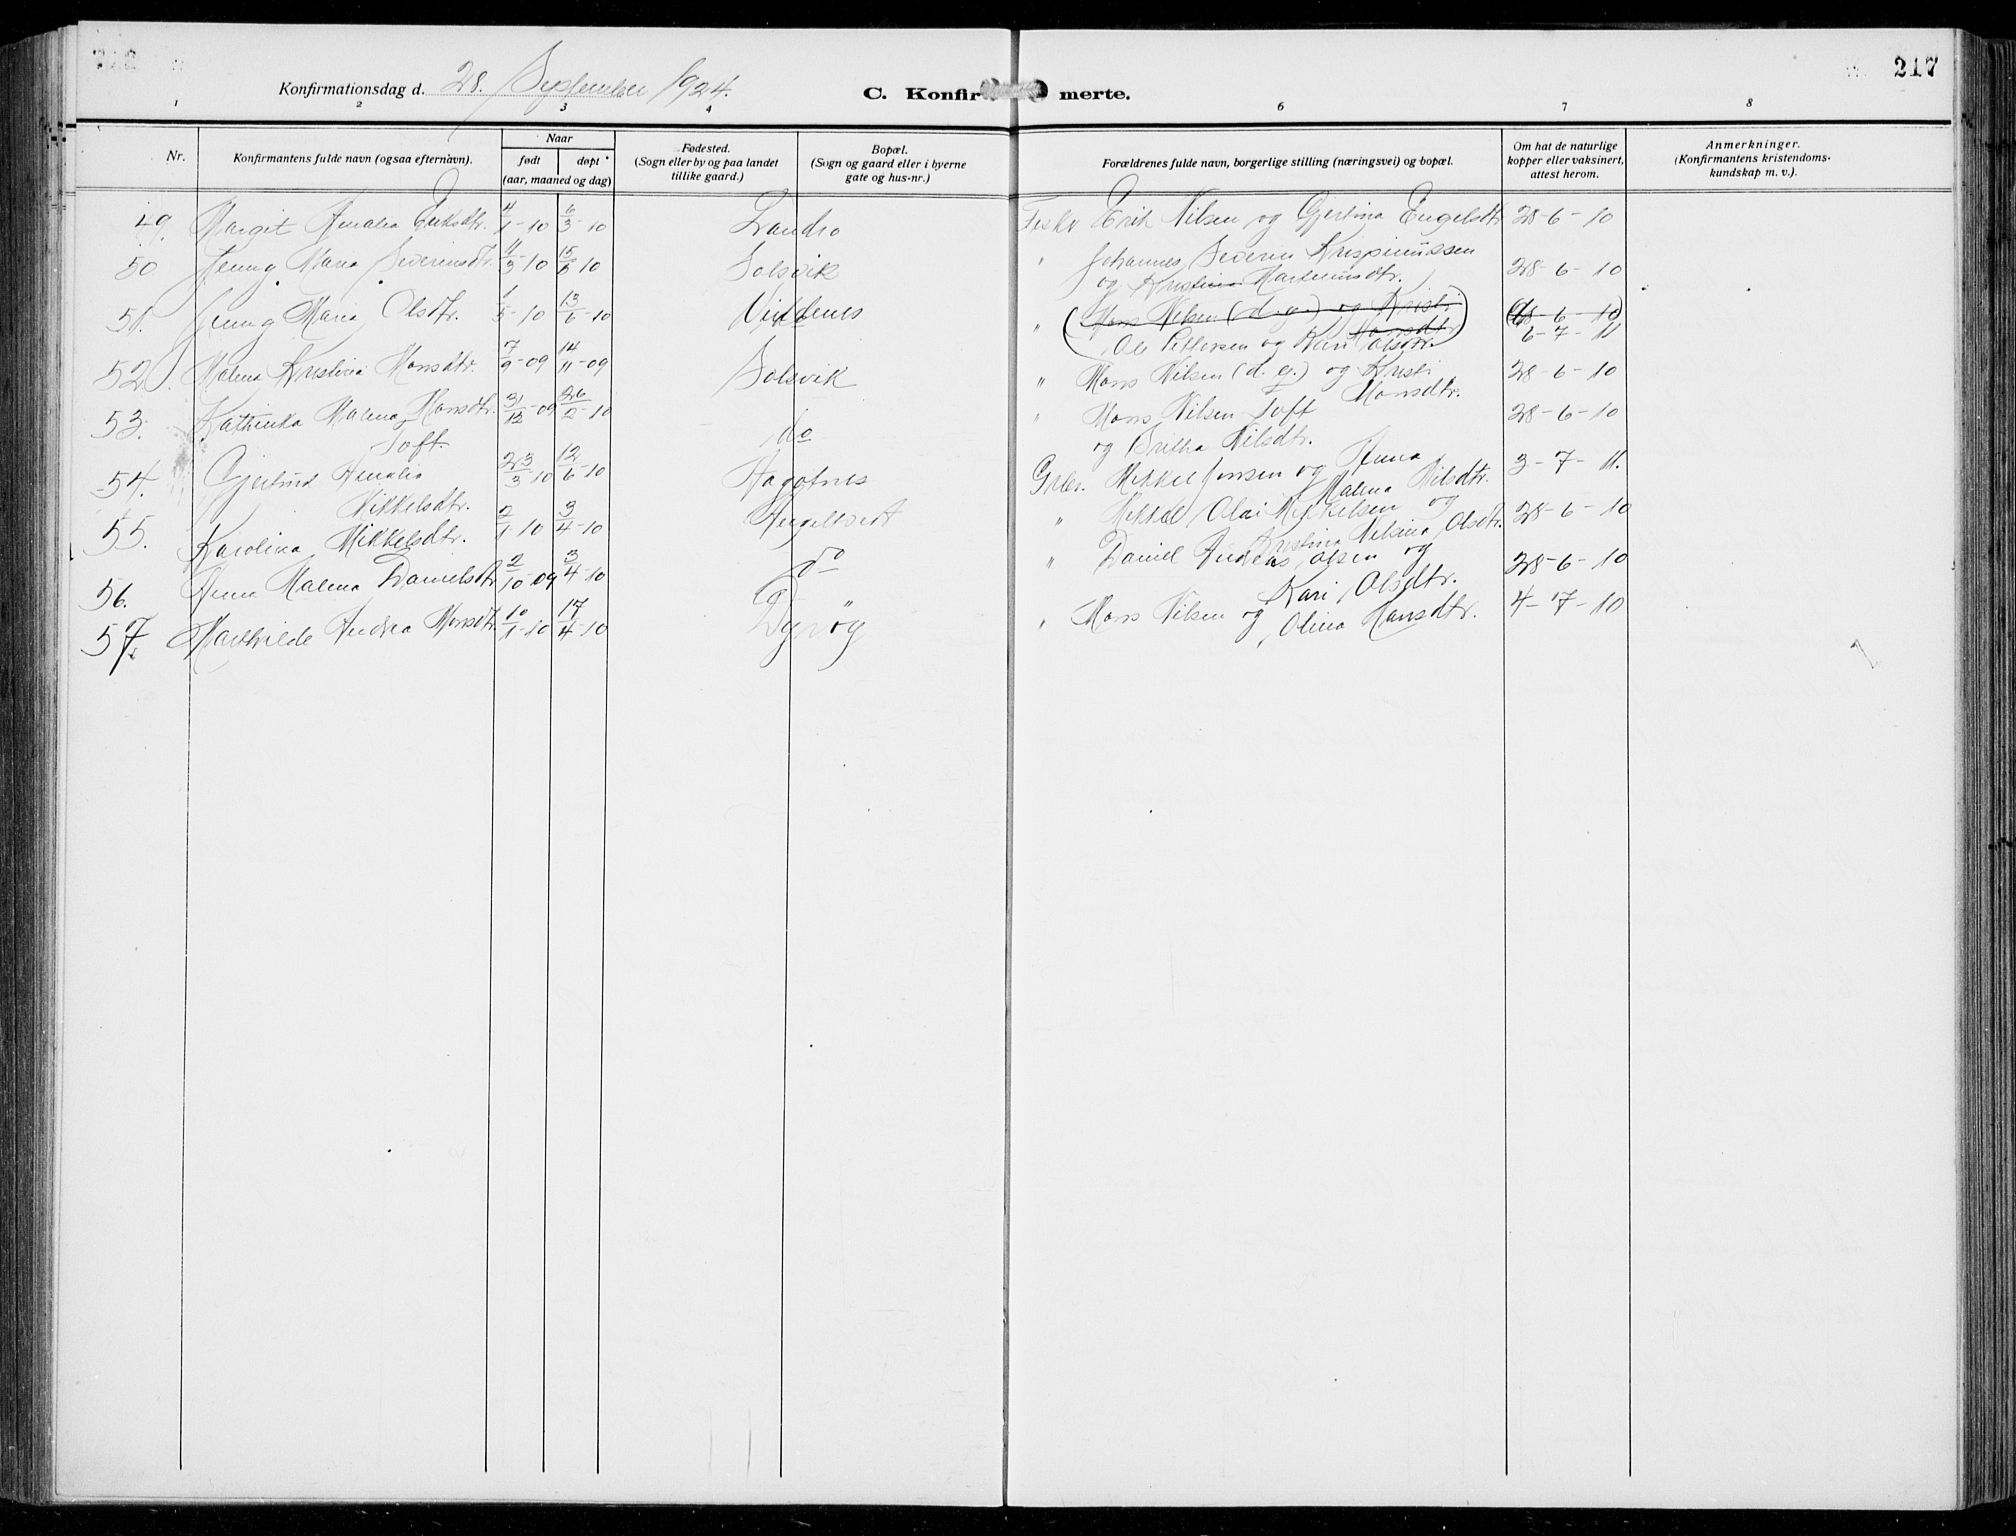 217
Konfirmationsdag d. 28. September 1924.
C. Konfirmerte.
1 2 3 4 6 7 8
Nr.
Konfirmantens fulde navn (ogsaa efternavn).
Naar
født
døpt
(aar, maaned og dag)
Fødested.
(Sogn eller by og paa landet
tillike gaard.)
Bopæl.
(Sogn og gaard eller i byerne
gate og hus-nr.)
Forældrenes fulde navn, borgerlige stilling (næringsvei) og bopæl.
Om hat de naturlige
kopper eller vaksinert,
attest herom.
Anmerkninger.
(Konfirmantens kristendoms-
kundskap m. v.).
49. Margit Amalia Eriksdtr. 4/1-10 6/3-10 Landro Fisker Erik Nilsen og Gjertina Engelsdtr 28-6-10
50 Jenny Maria Severinsdtr. 11/3-10 15/5 10 Solsvik " Johannes Severin Krispinussen
og Kristina Martinusdtr. 28-6-10
51. Jenny Maria Olsdtr. 1/5-10 13/6-10 Vindenes " (Mons Nilsen (d. y.) og Kristi Monsdtr) (28-6-10)
Ole Pettersen og Kari Olsdtr. 6-7-11
52. Malena Kristina Monsdtr. 7/9-09 14/11-09 Solsvik " Mons Nilsen (d. y.) og Kristi
Monsdtr. 28-6-10
53. Kathinka Malena Monsdtr. 31/12-09 26/2-10 do " Mons Nilsen Toft 28-6-10
Toft. og Britha Nilsdtr.
54. Gjertrud Amalia 23/3 10 12/6-10 Hagotnes Grbr. Mikkel Jensen og Anna 3-7-11.
Mikkelsdtr. Malena Nilsdtr.
55. Karolina Mikkelsdtr. 2/1-10 3/4-10 Angeltveit " Mikkel Olai Mikkelsen og 28-6-10
Kristina Nilsina Olsdtr.
56. Anna Malena Danielsdtr 2/10-09 3/4-10 do " Daniel Andreas Olsen og 28-6-10
Kari Olsdtr.
57. Mathilde Andrea Monsdtr. 10/1-10 17/4-10 Dyrøy " Mons Nilsen og 4-7-10
Olina Hansdtr.